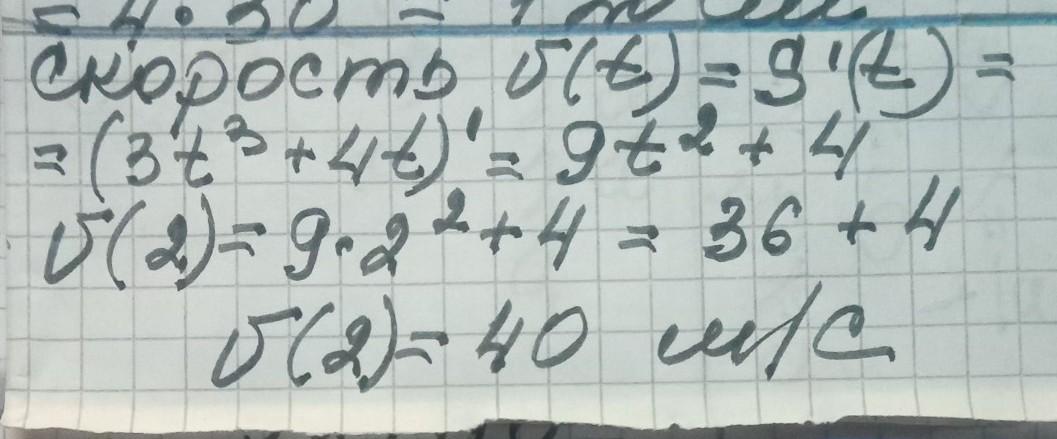 = 4 · 30 =
скорость v(t) = S'(t) =
= (3t³ + 4t)' = 9t² + 4
v(2) = 9 · 2² + 4 = 36 + 4
v(2) = 40 м/с